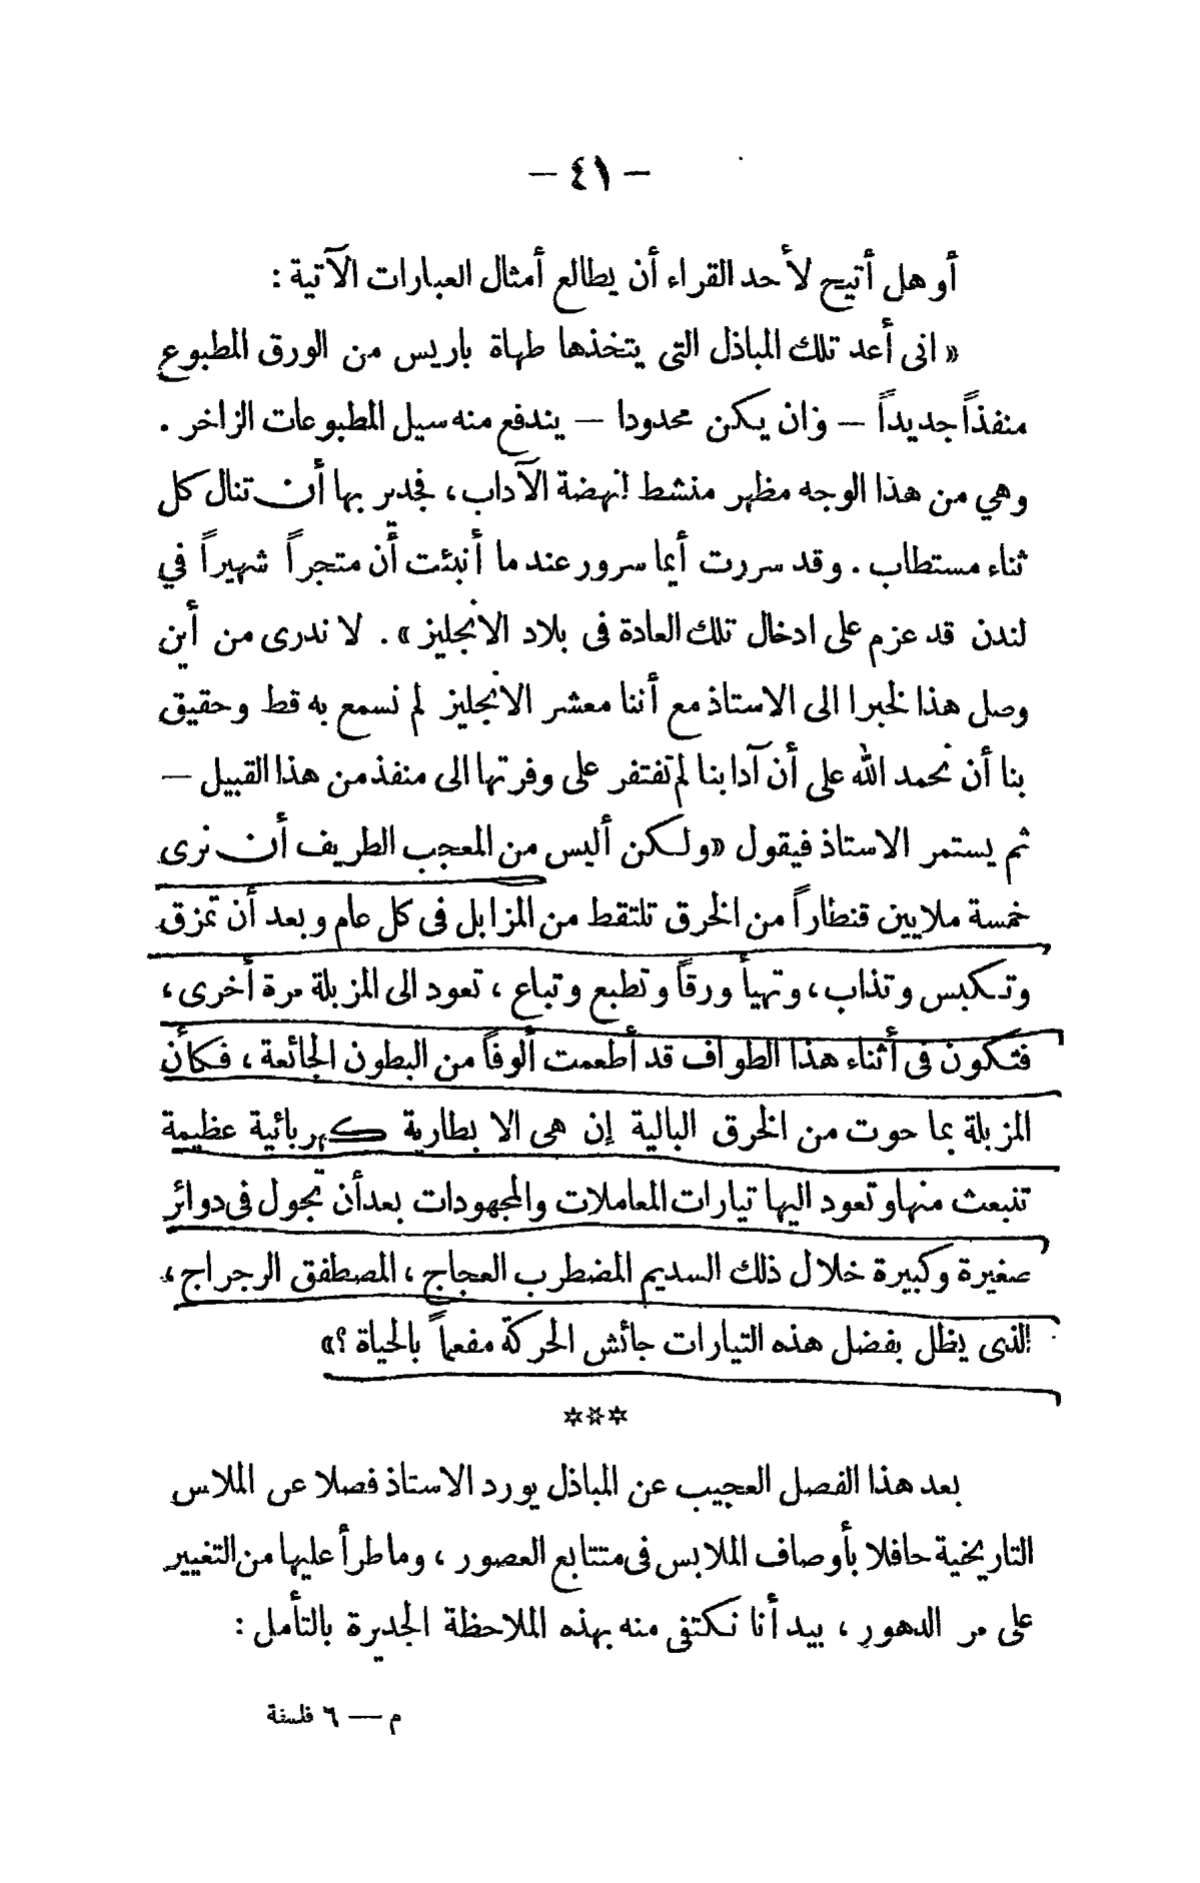 — ٤١ —
أو هل أتيح لأحد القراء أن يطالع أمثال العبارات الآتية :
« انى أعد تلك المباذل التى يتخذها طهاة باريس من الورق المطبوع
منفذاً جديداً — وان يكن محدودا — يندفع منه سيل المطبوعات الزاخر .
وهي من هذا الوجه مظهر منشط لنهضة الآداب ، فجدير بها أن تنال كل
ثناء مستطاب . وقد سررت أيما سرور عند ما أنبئت أن متجراً شهيراً في
لندن قد عزم على ادخال تلك العادة فى بلاد الانجليز » . لا ندرى من أين
وصل هذا لخبرا الى الاستاذ مع أننا معشر الانجليز لم نسمع به قط وحقيق
بنا أن نحمد الله على أن آدابنا لم تفتقر على وفرتها الى منفذ من هذا القبيل —
ثم يستمر الاستاذ فيقول « ولكن أليس من المعجب الطريف أن نرى
خمسة ملايين قنطاراً من الخرق تلتقط من المزابل فى كل عام وبعد أن تمزق
وتكبس وتذاب ، وتهيأ ورقاً وتطبع وتباع ، تعود الى المزبلة مرة أخرى ،
فتكون فى أثناء هذا الطواف قد أطعمت ألوفاً من البطون الجائعة ، فكأن
المزبلة بما حوت من الخرق البالية إن هى الا بطارية كهربائية عظيمة
تنبعث منها وتعود اليها تيارات المعاملات والمجهودات بعد أن تجول فى دوائر
صغيرة وكبيرة خلال ذلك السديم المضطرب العجاج ، المصطفق الرجراج ،
الذى يظل بفضل هذه التيارات جائش الحركة مفعماً بالحياة ؟ »
***
بعد هذا الفصل العجيب عن المباذل يورد الاستاذ فصلا عن الملابس
التاريخية حافلا بأوصاف الملابس فى متتابع العصور ، وما طرأ عليها من التغيير
على مر الدهور ، بيد أنا نكتفى منه بهذه الملاحظة الجديرة بالتأمل :
م — ٦ فلسفة